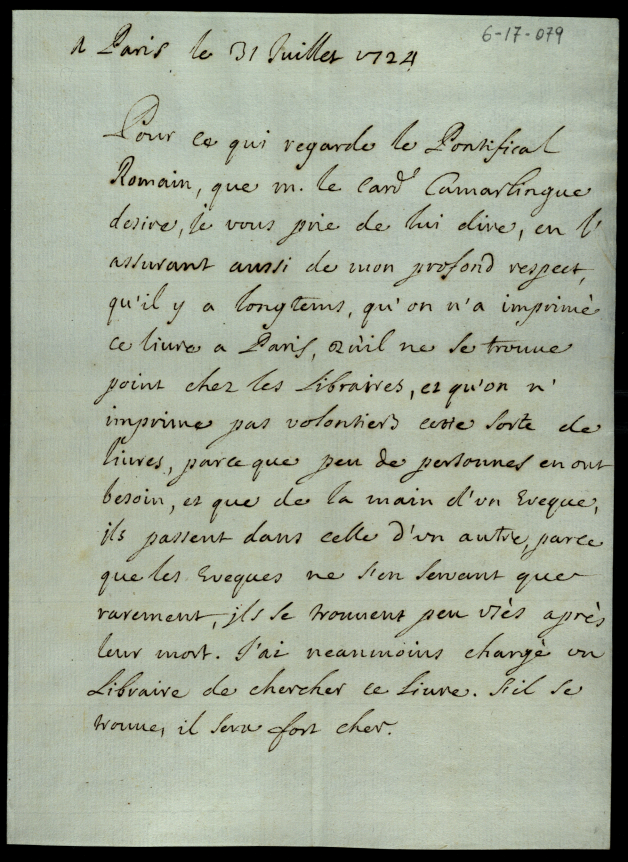 6-17-079
A Paris le 31 Juillet 1724
Pour ce qui regarde le Pontifical
Romain, que m. le card.l Camarlingue
desire, je vous prie de lui dire, en l'
assurant aussi de mon profond respect,
qu'il y a longtems, qu'on n'a imprimé
ce livre a Paris, qu'il ne se trouve
point chez les Libraires, et qu'on n'
imprime pas volontiers cette sorte de
livres, parce que peu de personnes en ont
besoin, et que de la main d'un Eveque,
ils passent dans celle d'un autre, parce
que les Eveques ne s'en servant que
rarement, ils se trouvent peu usés après
leur mort. J'ai neanmoins chargé un
Libraire de chercher ce Livre. S'il se
trouve, il sera fort cher.